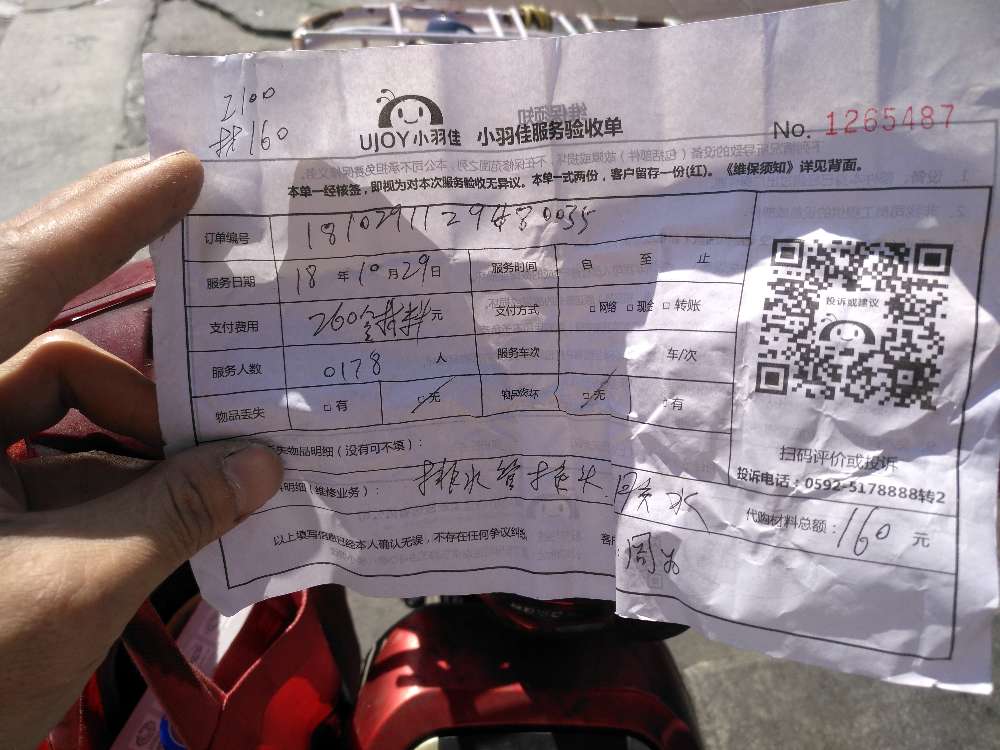 2100
材160
UJOY小羽佳 小羽佳服务验收单 No. 1265487
本单一经核签，即视为对本次服务验收无异议。本单一式两份，客户留存一份(红)。《维保须知》详见背面。
订单编号
服务日期 18 年 10 月 29 日 服务时间 自 至 止
支付费用 260 元 支付方式 □网络 □现金 □转账
服务人数 0178 人 服务车次 车/次
物品丢失 □有 □无 物品损坏 □无 □有
投诉或建议
失物品明细（没有可不填）：
明细(维修业务)： 排水管接头 水
扫码评价或投诉
投诉电话：0592-5178888转2
代购材料总额：160 元
以上填写信息已经本人确认无误，不存在任何争议纠 客 周